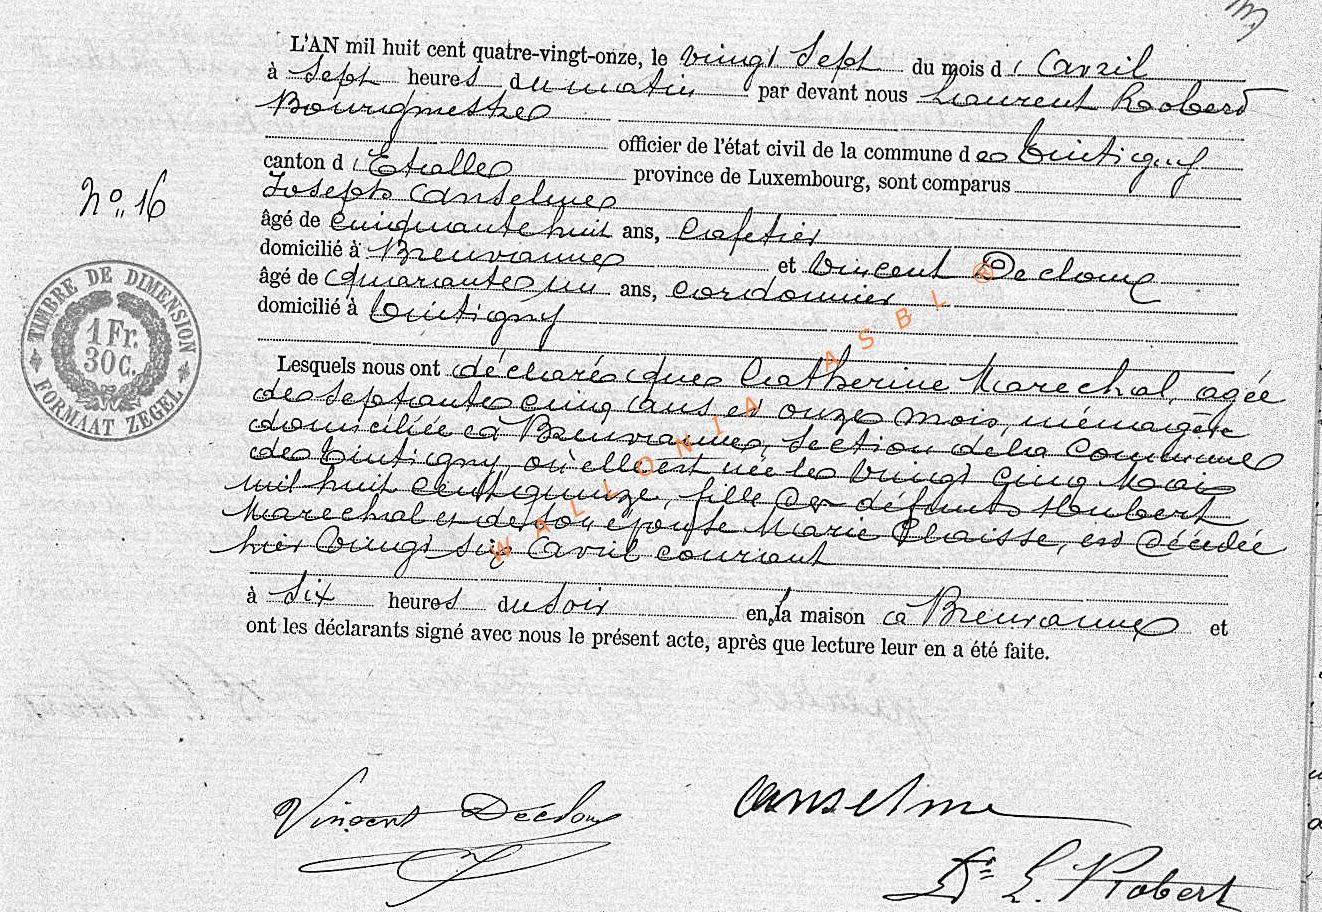 L'AN mil huit cent quatre-vingt-onze, le vingt sept du mois d'avril
à sept heures du matin par devant nous Laurent Robert
Bourgmestre
officier de l'état civil de la commune de Tintigny
canton d'Etalle province de Luxembourg, sont comparus
Joseph Anselme
âgé de cinquante huit ans, cafetier
domicilié à Breuvanne et Vincent Decloux
âgé de quarante un ans, cordonnier
domicilié à Tintigny
Nº 16
TIMBRE DE DIMENSION
1 Fr.
30 C.
FORMAAT ZEGEL
Lesquels nous ont déclaré que Catherine Marechal, agée
de septante cinq ans et onze mois, ménagère
domiciliée à Breuvanne, section de la commune
de Tintigny, où elle est née le vingt cinq Mai
mil huit cent quinze, fille de défunts Hubert
Marechal et de son épouse Marie Claisse, est décédée
hier vingt six avril courant
à six heures du soir en la maison à Breuvanne et
ont les déclarants signé avec nous le présent acte, après que lecture leur en a été faite.
WALLONIA ASBL ®
Vincent Decloux
Anselme
Dr L. Robert